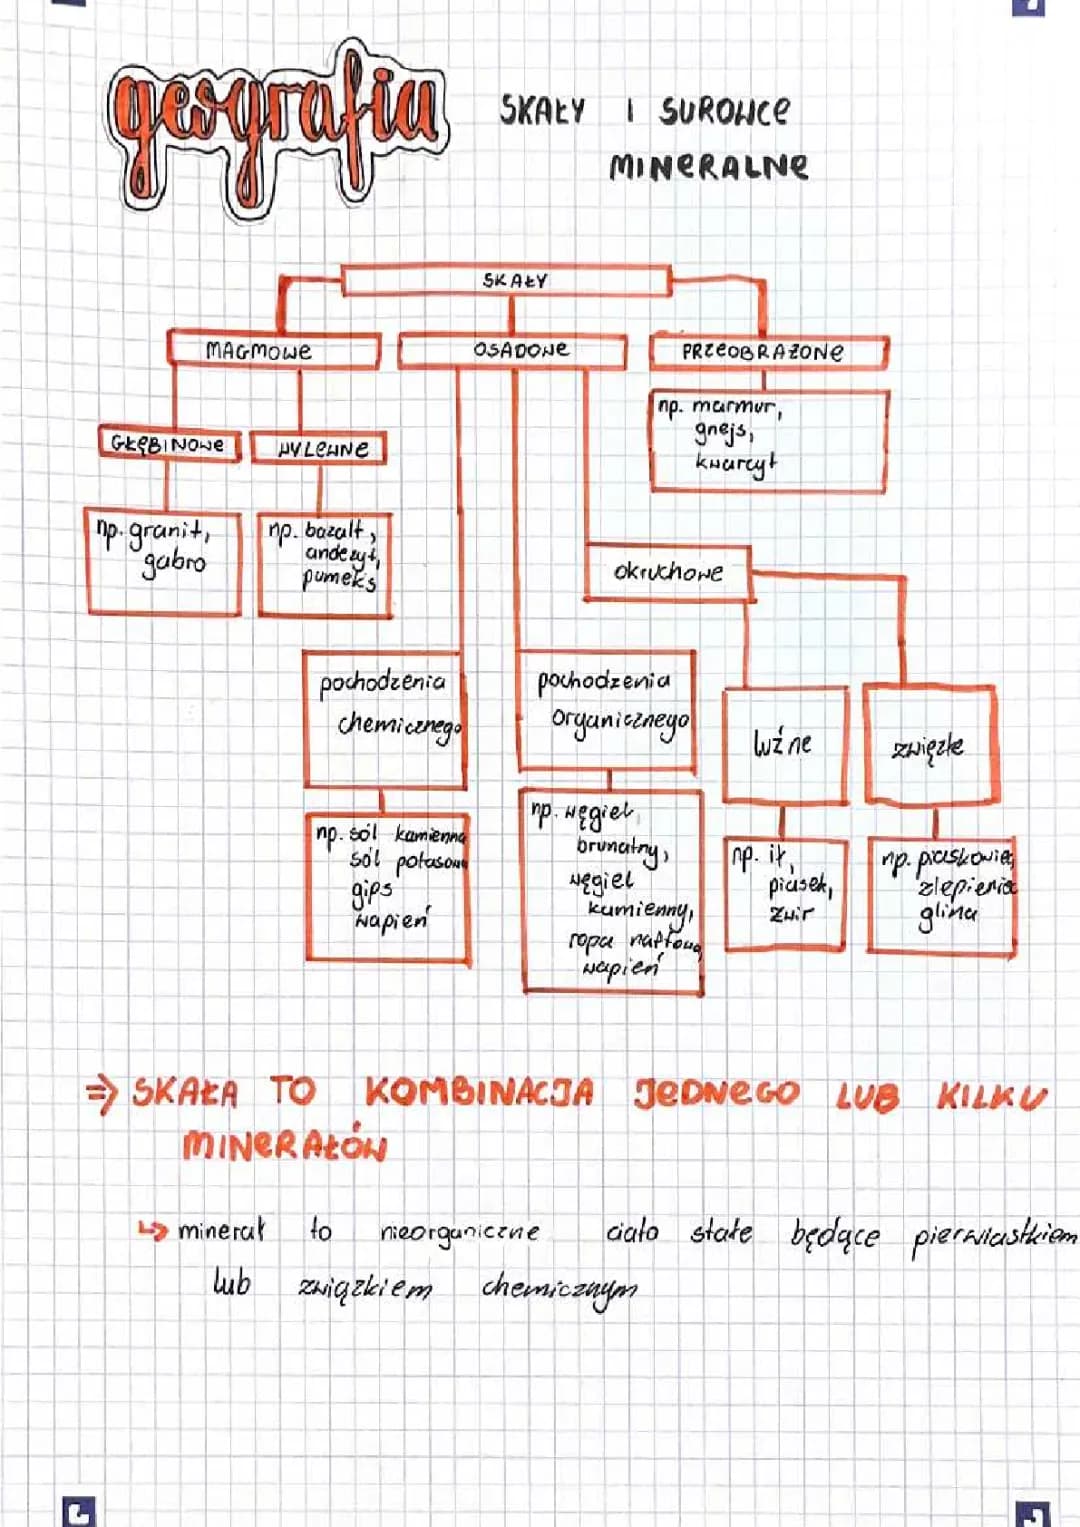 geografia
SKAŁY I SUROWCE
MINERALNE
SKAŁY
MAGMOWE
OSADOWE
PRZEOBRAŻONE
np. marmur,
gnejs,
kwarcyt
GŁĘBINOWE
WYLEWNE
np. granit,
gabro
np. bazalt,
andezyt,
pumeks
okruchowe
pochodzenia
chemicznego
pochodzenia
organicznego
luźne
zwięzłe
np. sól kamienna
sól potasowa
gips
wapień
np. węgiel
brunatny,
węgiel
kamienny,
ropa naftowa,
wapień
np. ił,
piasek,
żwir
np. piaskowiec,
zlepieniec
glina
⇒ SKAŁA TO KOMBINACJA JEDNEGO LUB KILKU
MINERAŁÓW
↳ minerał to nieorganiczne ciało stałe będące pierwiastkiem
lub związkiem chemicznym